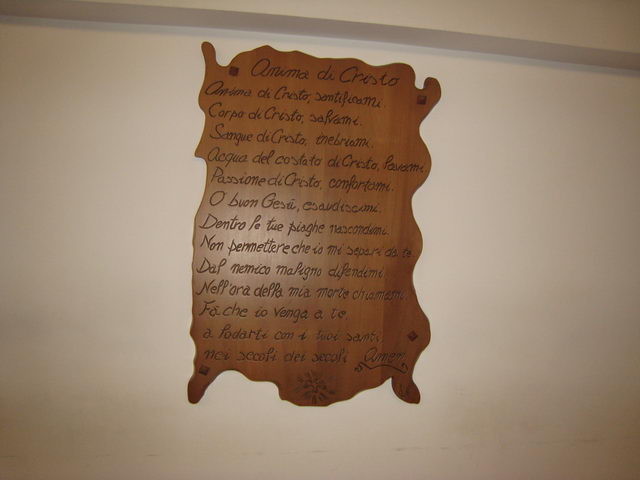 Anima di Cristo
Anima di Cristo, santificami.
Corpo di Cristo, salvami.
Sangue di Cristo, inebriami.
Acqua del costato di Cristo, lavami.
Passione di Cristo, confortami.
O buon Gesù, esaudiscimi.
Dentro le tue piaghe nascondimi.
Non permettere che io mi separi da te.
Dal nemico maligno difendimi.
Nell'ora della mia morte chiamami.
Fà che io venga a te,
a lodarti con i tuoi santi
nei secoli dei secoli Amen